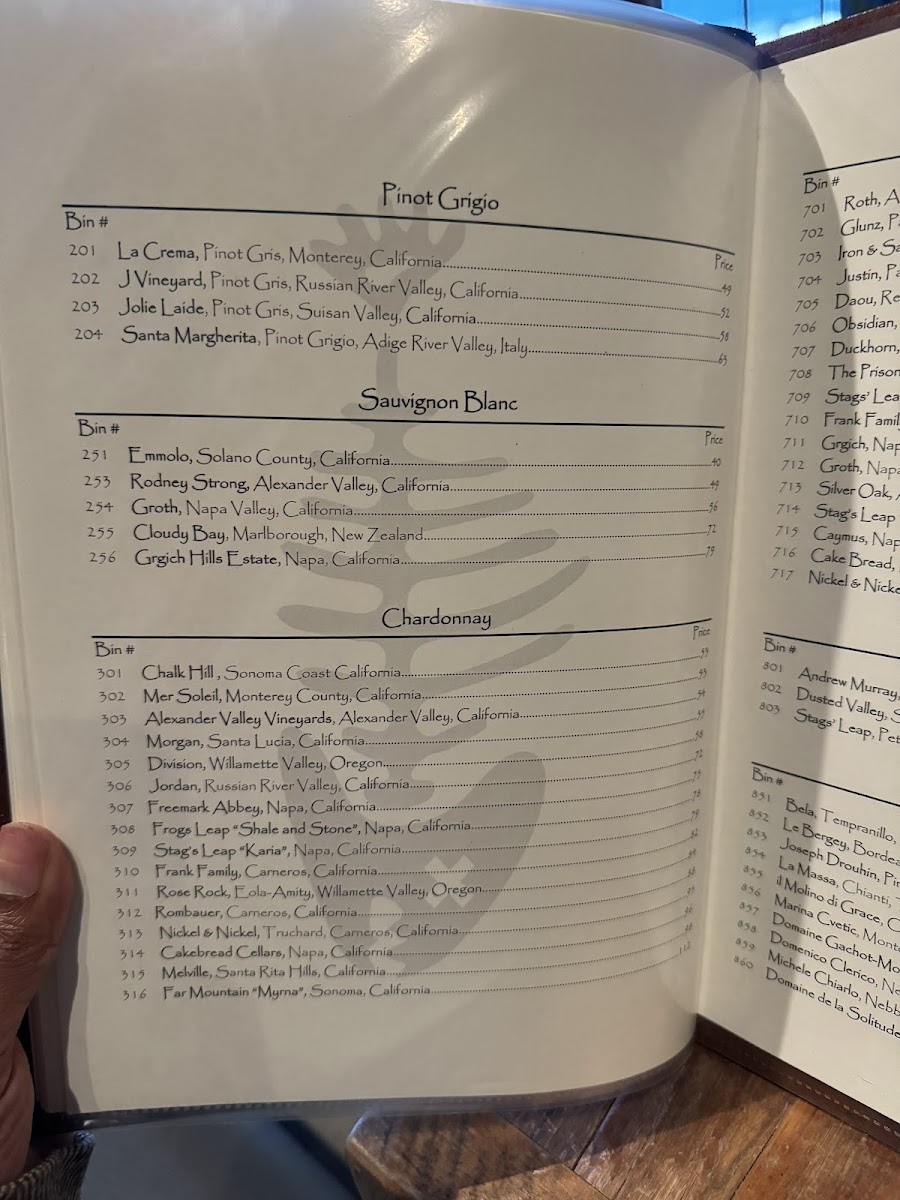 Pinot Grigio
Bin # Price
201 La Crema, Pinot Gris, Monterey, California 49
202 J Vineyard, Pinot Gris, Russian River Valley, California 52
203 Jolie Laide, Pinot Gris, Suisan Valley, California 58
204 Santa Margherita, Pinot Grigio, Adige River Valley, Italy 63
Sauvignon Blanc
Bin # Price
251 Emmolo, Solano County, California 40
253 Rodney Strong, Alexander Valley, California 49
254 Groth, Napa Valley, California 56
255 Cloudy Bay, Marlborough, New Zealand 72
256 Grgich Hills Estate, Napa, California 79
Chardonnay
Bin # Price
301 Chalk Hill , Sonoma Coast California 53
302 Mer Soleil, Monterey County, California 53
303 Alexander Valley Vineyards, Alexander Valley, California 54
304 Morgan, Santa Lucia, California 55
305 Division, Willamette Valley, Oregon 58
306 Jordan, Russian River Valley, California 72
307 Freemark Abbey, Napa, California 75
308 Frogs Leap "Shale and Stone", Napa, California 78
309 Stag's Leap "Karia", Napa, California 79
310 Frank Family, Carneros, California 82
311 Rose Rock, Eola-Amity, Willamette Valley, Oregon
312 Rombauer, Carneros, California
313 Nickel & Nickel, Truchard, Carneros, California
314 Cakebread Cellars, Napa, California 96
315 Melville, Santa Rita Hills, California 98
316 Far Mountain "Myrna", Sonoma, California 112
Bin #
701 Roth, A
702 Glunz, Pa
703 Iron & Sa
704 Justin, Pa
705 Daou, Re
706 Obsidian,
707 Duckhorn,
708 The Prison
709 Stags' Lea
710 Frank Famil
711 Grgich, Nap
712 Groth, Napa
713 Silver Oak,
714 Stag's Leap
715 Caymus, Nap
716 Cake Bread,
717 Nickel & Nicke
Bin #
801 Andrew Murray,
802 Dusted Valley, S
803 Stags' Leap, Pet
Bin #
851 Bela, Tempranillo,
852 Le Bergey, Bordea
853 Joseph Drouhin, Pin
854 La Massa, Chianti,
855 il Molino di Grace, C
856 Marina Cvetic, Mont
857 Domaine Gachot-Mo
858 Domenico Clerico, Ne
859 Michele Chiarlo, Nebb
860 Domaine de la Solitude